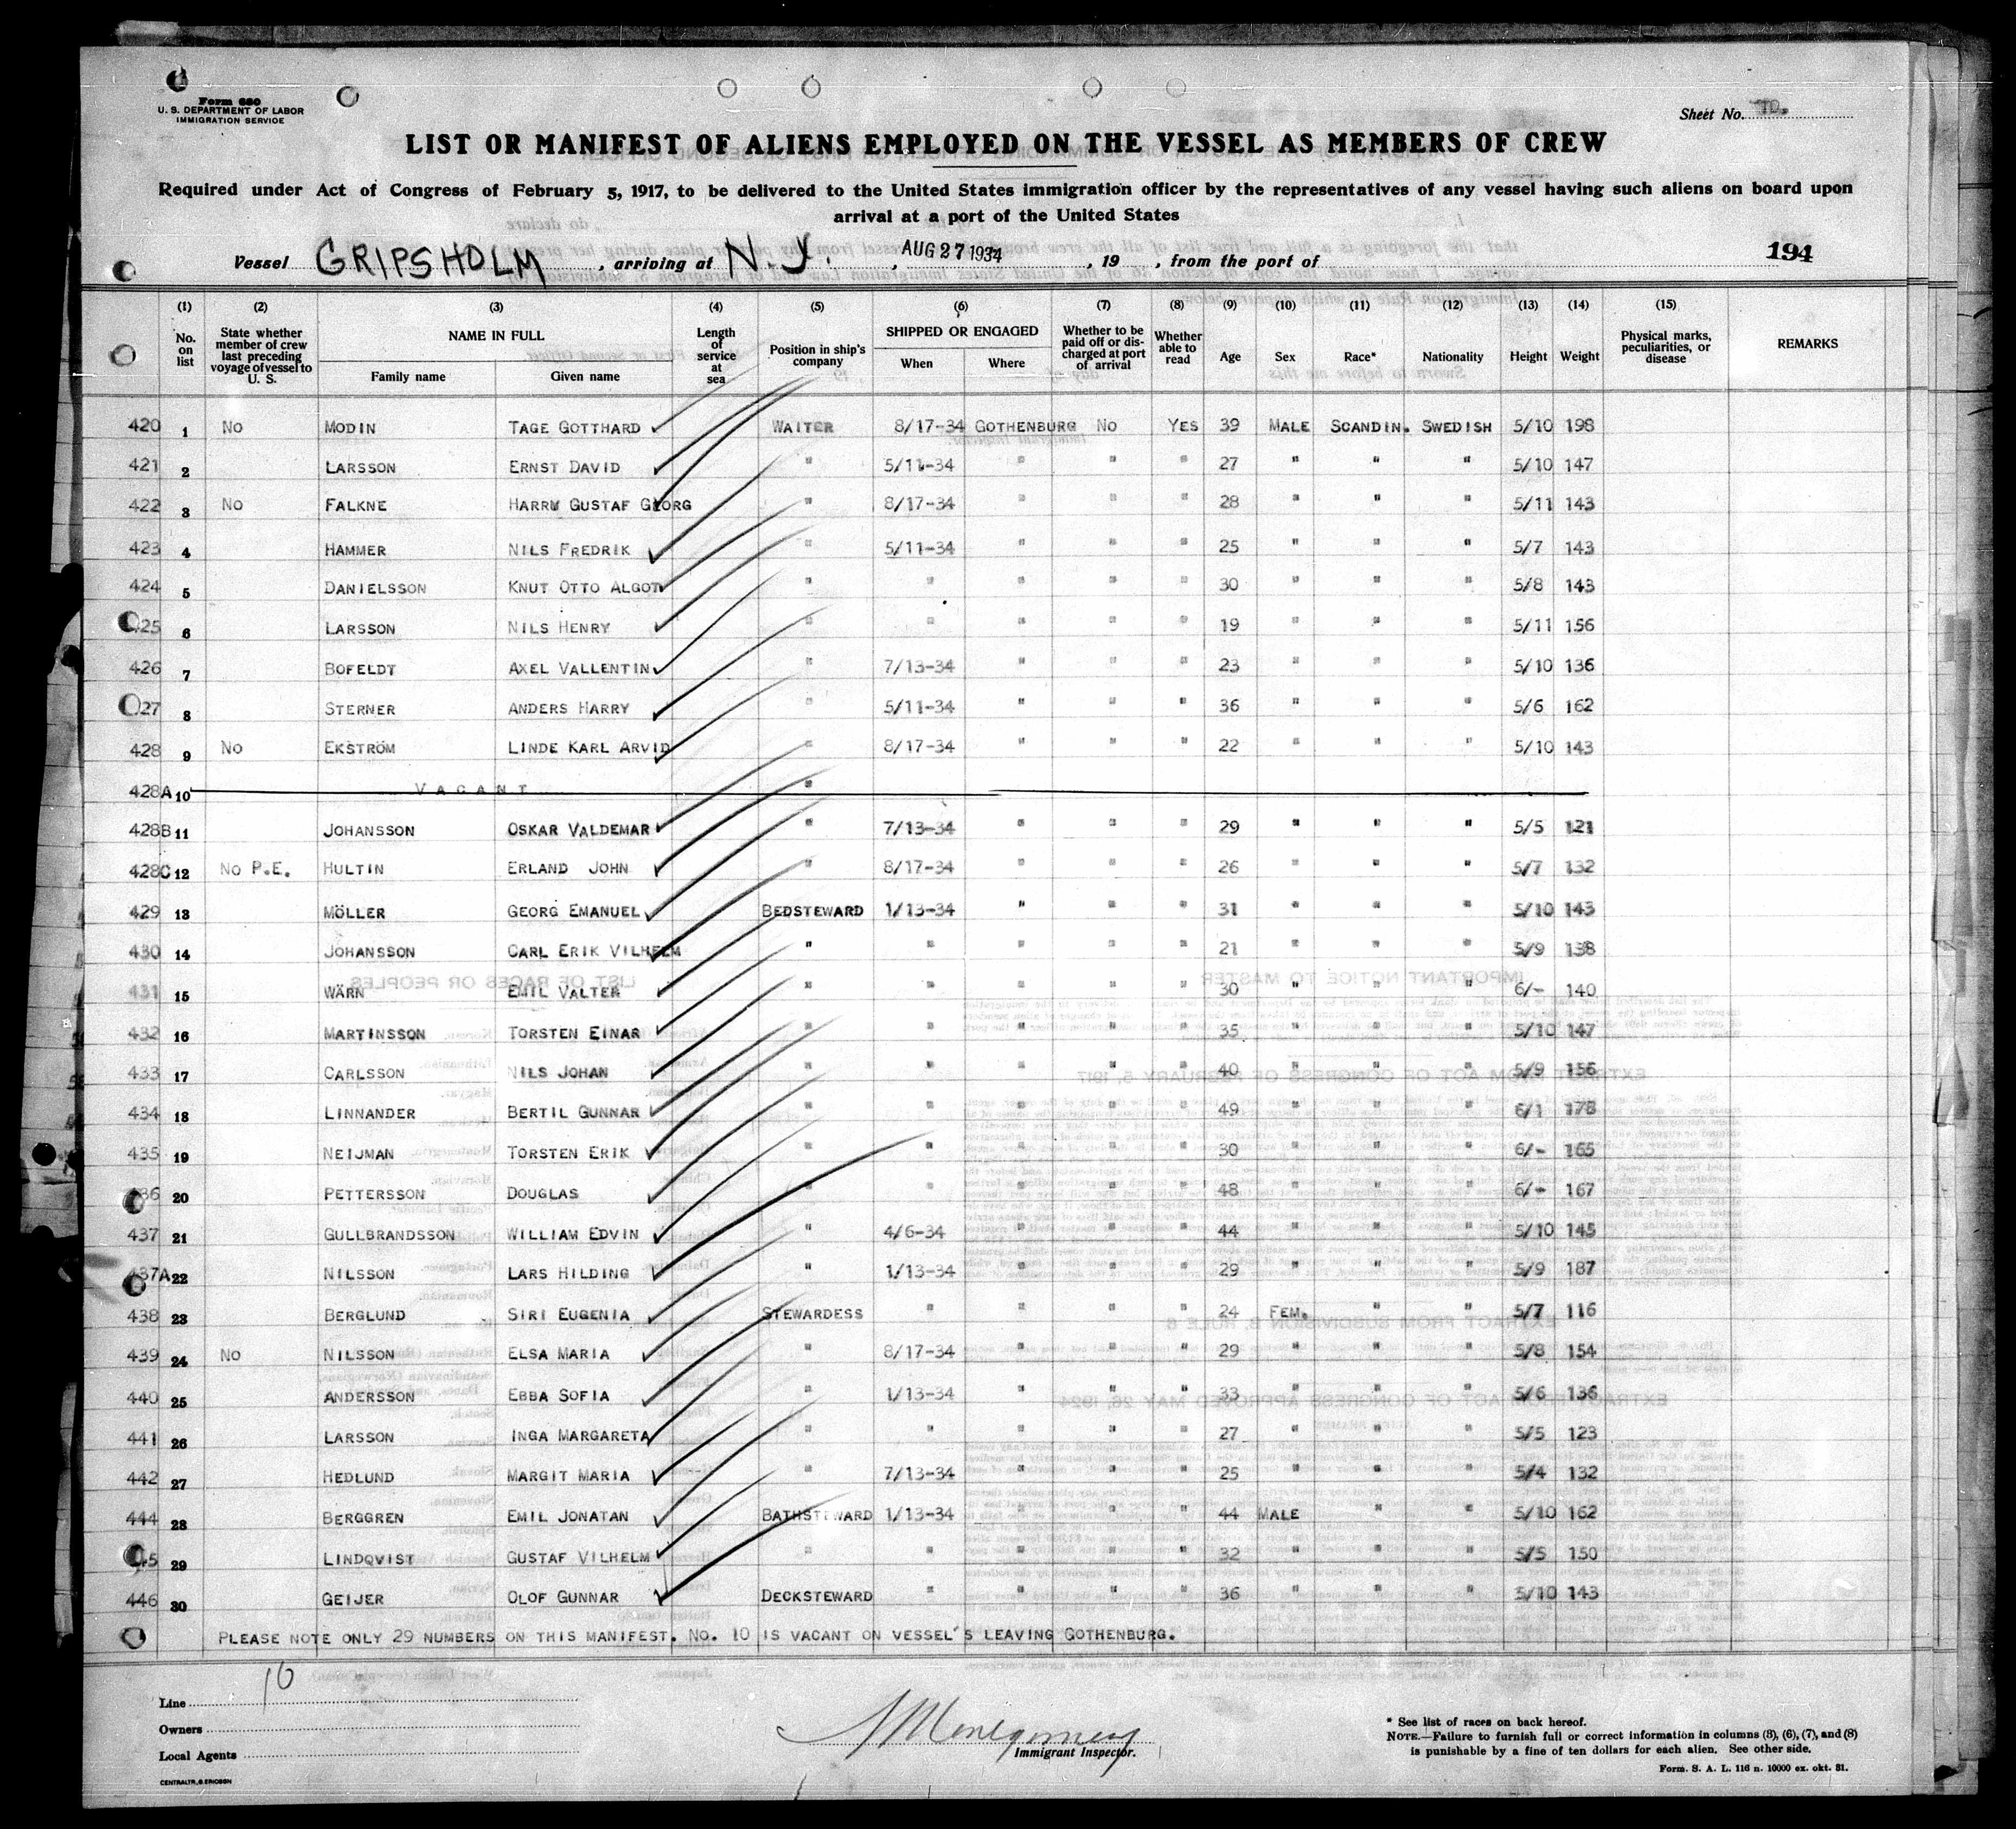 Form 680
U. S. DEPARTMENT OF LABOR
IMMIGRATION SERVICE
Sheet No. 10.
LIST OR MANIFEST OF ALIENS EMPLOYED ON THE VESSEL AS MEMBERS OF CREW
Required under Act of Congress of February 5, 1917, to be delivered to the United States immigration officer by the representatives of any vessel having such aliens on board upon
arrival at a port of the United States
Vessel GRIPSHOLM, arriving at N.Y., AUG 27 1934, 19 , from the port of 194
(1) (2) (3) (4) (5) (6) (7) (8) (9) (10) (11) (12) (13) (14) (15)
No. on list State whether member of crew last preceding voyage of vessel to U. S. NAME IN FULL Family name Given name Length of service at sea Position in ship's company SHIPPED OR ENGAGED When Where Whether to be paid off or discharged at port of arrival Whether able to read Age Sex Race* Nationality Height Weight Physical marks, peculiarities, or disease REMARKS
420 1 No MODIN TAGE GOTTHARD WAITER 8/17-34 GOTHENBURG No YES 39 MALE SCANDIN. SWEDISH 5/10 198
421 2 LARSSON ERNST DAVID " 5/11-34 " " " 27 " " " 5/10 147
422 3 No FALKNE HARRY GUSTAF GEORG " 8/17-34 " " " 28 " " " 5/11 143
423 4 HAMMER NILS FREDRIK " 5/11-34 " " " 25 " " " 5/7 143
424 5 DANIELSSON KNUT OTTO ALGOT " " " " " 30 " " " 5/8 143
425 6 LARSSON NILS HENRY " " " " " 19 " " " 5/11 156
426 7 BOFELDT AXEL VALLENTIN " 7/13-34 " " " 23 " " " 5/10 136
427 8 STERNER ANDERS HARRY " 5/11-34 " " " 36 " " " 5/6 162
428 9 No EKSTRÖM LINDE KARL ARVID " 8/17-34 " " " 22 " " " 5/10 143
428A 10 VACANT "
428B 11 JOHANSSON OSKAR VALDEMAR " 7/13-34 " " " 29 " " " 5/5 121
428C 12 No P.E. HULTIN ERLAND JOHN " 8/17-34 " " " 26 " " " 5/7 132
429 13 MÖLLER GEORG EMANUEL BEDSTEWARD 1/13-34 " " " 31 " " " 5/10 143
430 14 JOHANSSON CARL ERIK VILHELM " " " " " 21 " " " 5/9 138
431 15 WÄRN EMIL VALTER " " " " " 30 " " " 6/- 140
432 16 MARTINSSON TORSTEN EINAR " " " " " 35 " " " 5/10 147
433 17 CARLSSON NILS JOHAN " " " " " 40 " " " 5/9 156
434 18 LINNANDER BERTIL GUNNAR " " " " " 49 " " " 6/1 178
435 19 NEIJMAN TORSTEN ERIK " " " " " 30 " " " 6/- 165
436 20 PETTERSSON DOUGLAS " " " " " 48 " " " 6/- 167
437 21 GULLBRANDSSON WILLIAM EDVIN " 4/6-34 " " " 44 " " " 5/10 145
437A 22 NILSSON LARS HILDING " 1/13-34 " " " 29 " " " 5/9 187
438 23 BERGLUND SIRI EUGENIA STEWARDESS " " " " 24 FEM. " " 5/7 116
439 24 No NILSSON ELSA MARIA " 8/17-34 " " " 29 " " " 5/8 154
440 25 ANDERSSON EBBA SOFIA " 1/13-34 " " " 33 " " " 5/6 136
441 26 LARSSON INGA MARGARETA " " " " " 27 " " " 5/5 123
442 27 HEDLUND MARGIT MARIA " 7/13-34 " " " 25 " " " 5/4 132
444 28 BERGGREN EMIL JONATAN BATHSTEWARD 1/13-34 " " " 44 MALE " " 5/10 162
445 29 LINDQVIST GUSTAF VILHELM " " " " " 32 " " " 5/5 150
446 30 GEIJER OLOF GUNNAR DECKSTEWARD " " " " 36 " " " 5/10 143
PLEASE NOTE ONLY 29 NUMBERS ON THIS MANIFEST. No. 10 IS VACANT ON VESSEL'S LEAVING GOTHENBURG.
10
Line
Owners
Local Agents
CENTRALTR, G. ERICSON
Montgomery
Immigrant Inspector.
* See list of races on back hereof.
NOTE.—Failure to furnish full or correct information in columns (3), (6), (7), and (8)
is punishable by a fine of ten dollars for each alien. See other side.
Form. S. A. L. 116 n. 10000 ex. okt. 31.